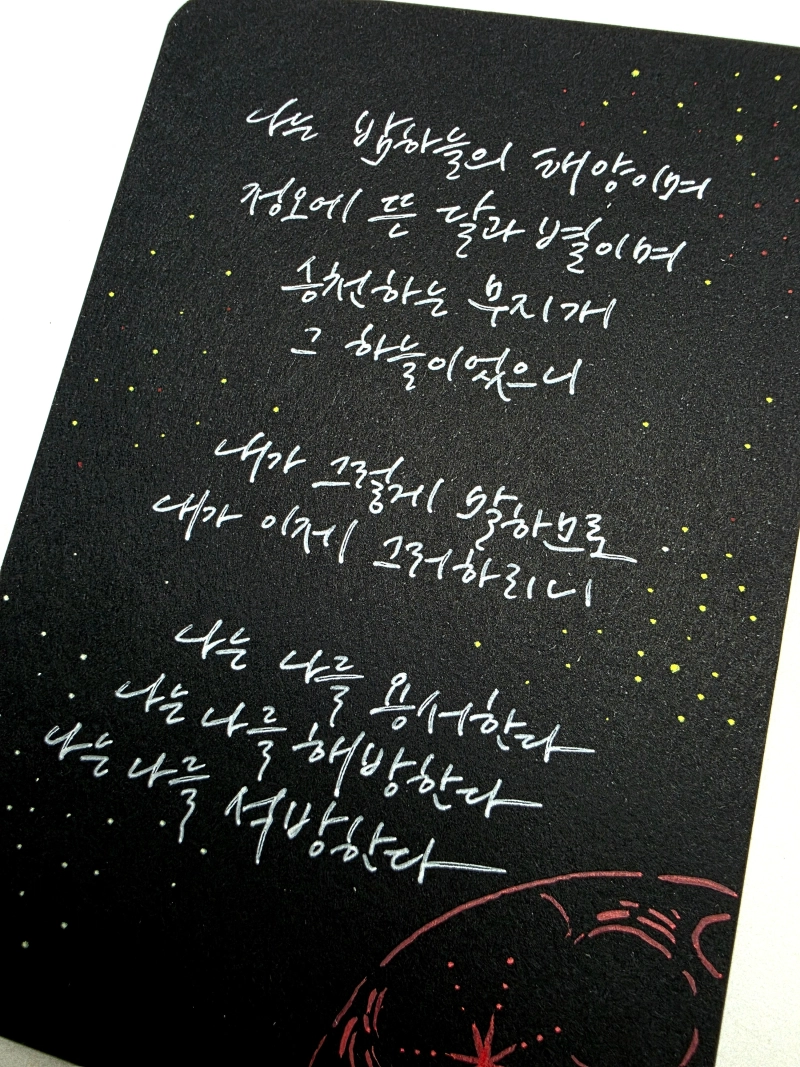 나는 밤하늘의 태양이며
정오에 뜬 달과 별이며
승천하는 무지개
그 하늘이었으니
내가 그렇게 말하므로
내가 이제 그러하리니
나는 나를 용서한다
나는 나를 해방한다
나는 나를 석방한다